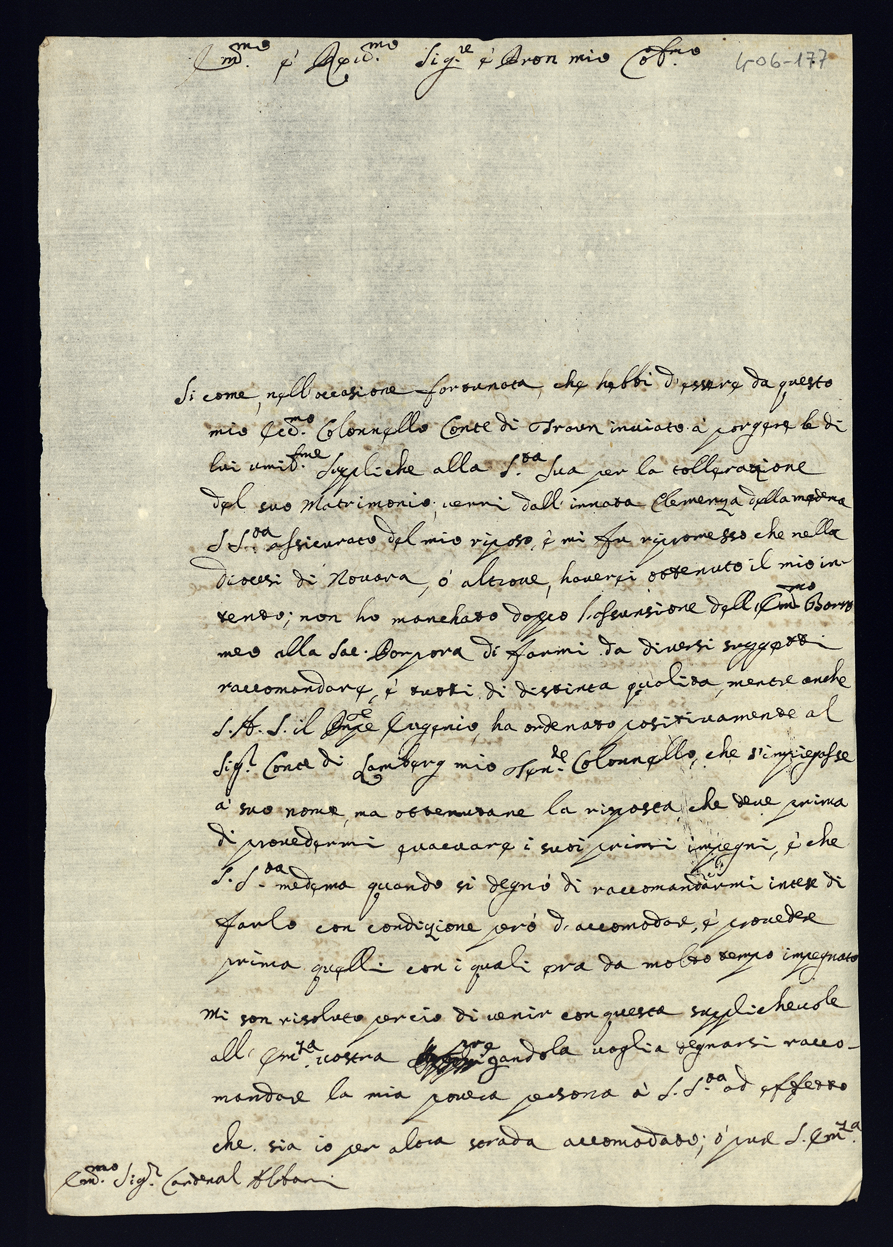 Em.mo è Re.mo Sig.re è Pron mio Col.mo
406-177
Si come, nell'occasione fortunata, che hebbi d'essere da questo
mio Ecc.mo Colonnello Conte di Traun inviato à porgere le di
lui umil.me Suppliche alla S.ta Sua per la tolleratione
del suo Matrimonio, venni dall'innata Clemenza della medema
S. S.ta assicurato del mio riposo, è mi fu ripromesso che nella
diocesi di Novara, ó altrove, haverei ottenuto il mio in-
tento; non ho manchato doppo l'assunsione dell'Em.mo Borro
meo alla Sac. Porpora di farmi da diversi suggetti
raccomandare, è tutti di distinta qualita, mentre anche
S. A. S. il Pnpe Eugenio, ha ordenato positivamente al
Sig.r Conte di Lamberg mio Ten.te Colonnello, che s'impiegasse
à suo nome, ma ottenutane la risposta, che deve prima
di provedermi evacuare i suoi primi impegni, è che
S. S.ta medema quando si degnó di raccomandarmi intese di
farlo con condizione peró d'accomodare, è provedere
prima quelli con i quali era da molto tempo impegnato
Mi son risoluto percio di venir con questa supplichevole
all'Em.za vostra pregandola voglia degnarsi racco-
mandare la mia povera persona à S. S.ta ad effetto
che sia io per alora accomodato; ó pure S. Em.za
Em.mo Sig.r Cardenal Albani